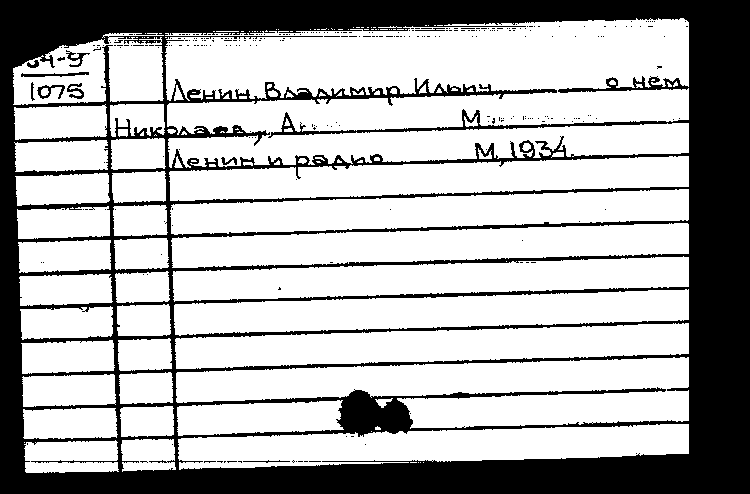 1075
Ленин, Владимир Ильич, о нем
Николаев, А. М.
Ленин и радио М, 1934.